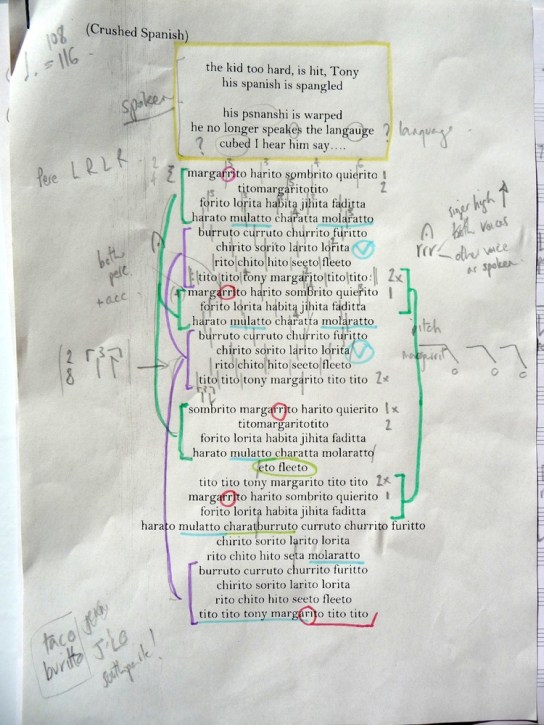 (Crushed Spanish)
108
♩. = 116
the kid too hard, is hit, Tony
his spanish is spangled
spoken
his psnanshi is warped
he no longer speakes the langauge ? language
? cubed I hear him say….
Perc L R L R
margarrito harito sombrito quierito 1
titomargaritotito 2
forito lorita habita jihita faditta
harato mulatto charatta molaratto
burruto curruto churrito furitto
chirito sorito larito lorita
rito chito hito seeto fleeto
tito tito tony margarito tito tito 2x
margarrito harito sombrito quierito 1
forito lorita habita jihita faditta
harato mulatto charatta molaratto
burruto curruto churrito furitto
chirito sorito larito lorita
rito chito hito seeto fleeto
tito tito tony margarito tito tito 2x
singer high
both voices
rrr other voice
or spoken
both
perc
+ acc
pitch
margarit
2 3
8
sombrito margarrito harito quierito 1x
titomargaritotito 2
forito lorita habita jihita faditta
harato mulatto charatta molaratto
eto fleeto
tito tito tony margarito tito tito 2x
margarrito harito sombrito quierito 1
forito lorita habita jihita faditta
harato mulatto charatburruto curruto churrito furitto
chirito sorito larito lorita
rito chito hito seta molaratto
burruto curruto churrito furitto
chirito sorito larito lorita
rito chito hito seeto fleeto
tito tito tony margarito tito tito
taco
buritto
J-LO
southpark!